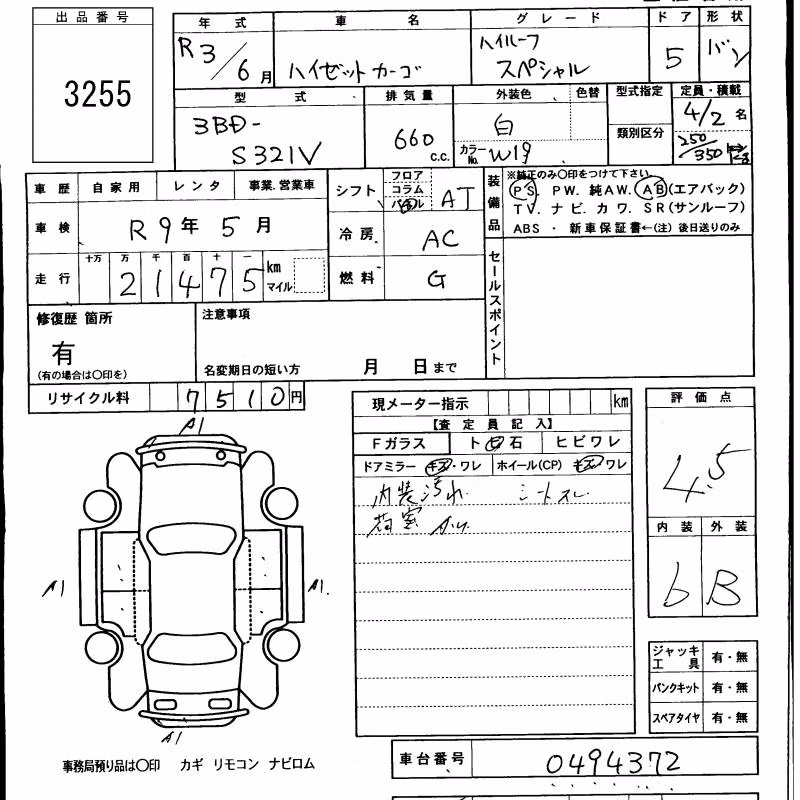 出品番号
3255
年式 車名 グレード ドア 形状
R3/6月 ハイゼットカーゴ ハイルーフ スペシャル 5 バン
型式 排気量 外装色 色替 型式指定 定員・積載
3BD-S321V 660 c.c. 白 カラーNo. W19 類別区分 4/2名 250/350
車歴 自家用 レンタ 事業.営業車
シフト フロア コラム AT
装備品 ※純正のみ〇印をつけて下さい
PS. PW. 純AW. AB(エアバック)
TV. ナビ. カワ. SR(サンルーフ)
ABS ・ 新車保証書←(注)後日送りのみ
車検 R9年5月
冷房 AC
走行 十万 万 千 百 十 一
21475 km マイル
燃料 G
セールスポイント
修復歴 箇所 注意事項
有
(有の場合は〇印を)
名変期日の短い方 月 日まで
リサイクル料 7510円
現メーター指示 km
【査定員記入】
Fガラス ト日石 ヒビワレ
ドアミラー キズ・ワレ ホイール(CP) キズ・ワレ
内装汚れ シートスレ
荷室
評価点
4.5
内装 外装
b B
A1
A1 A1.
A1
ジャッキ工具 有・無
パンクキット 有・無
スペアタイヤ 有・無
車台番号 0494372
事務局預り品は〇印 カギ リモコン ナビロム